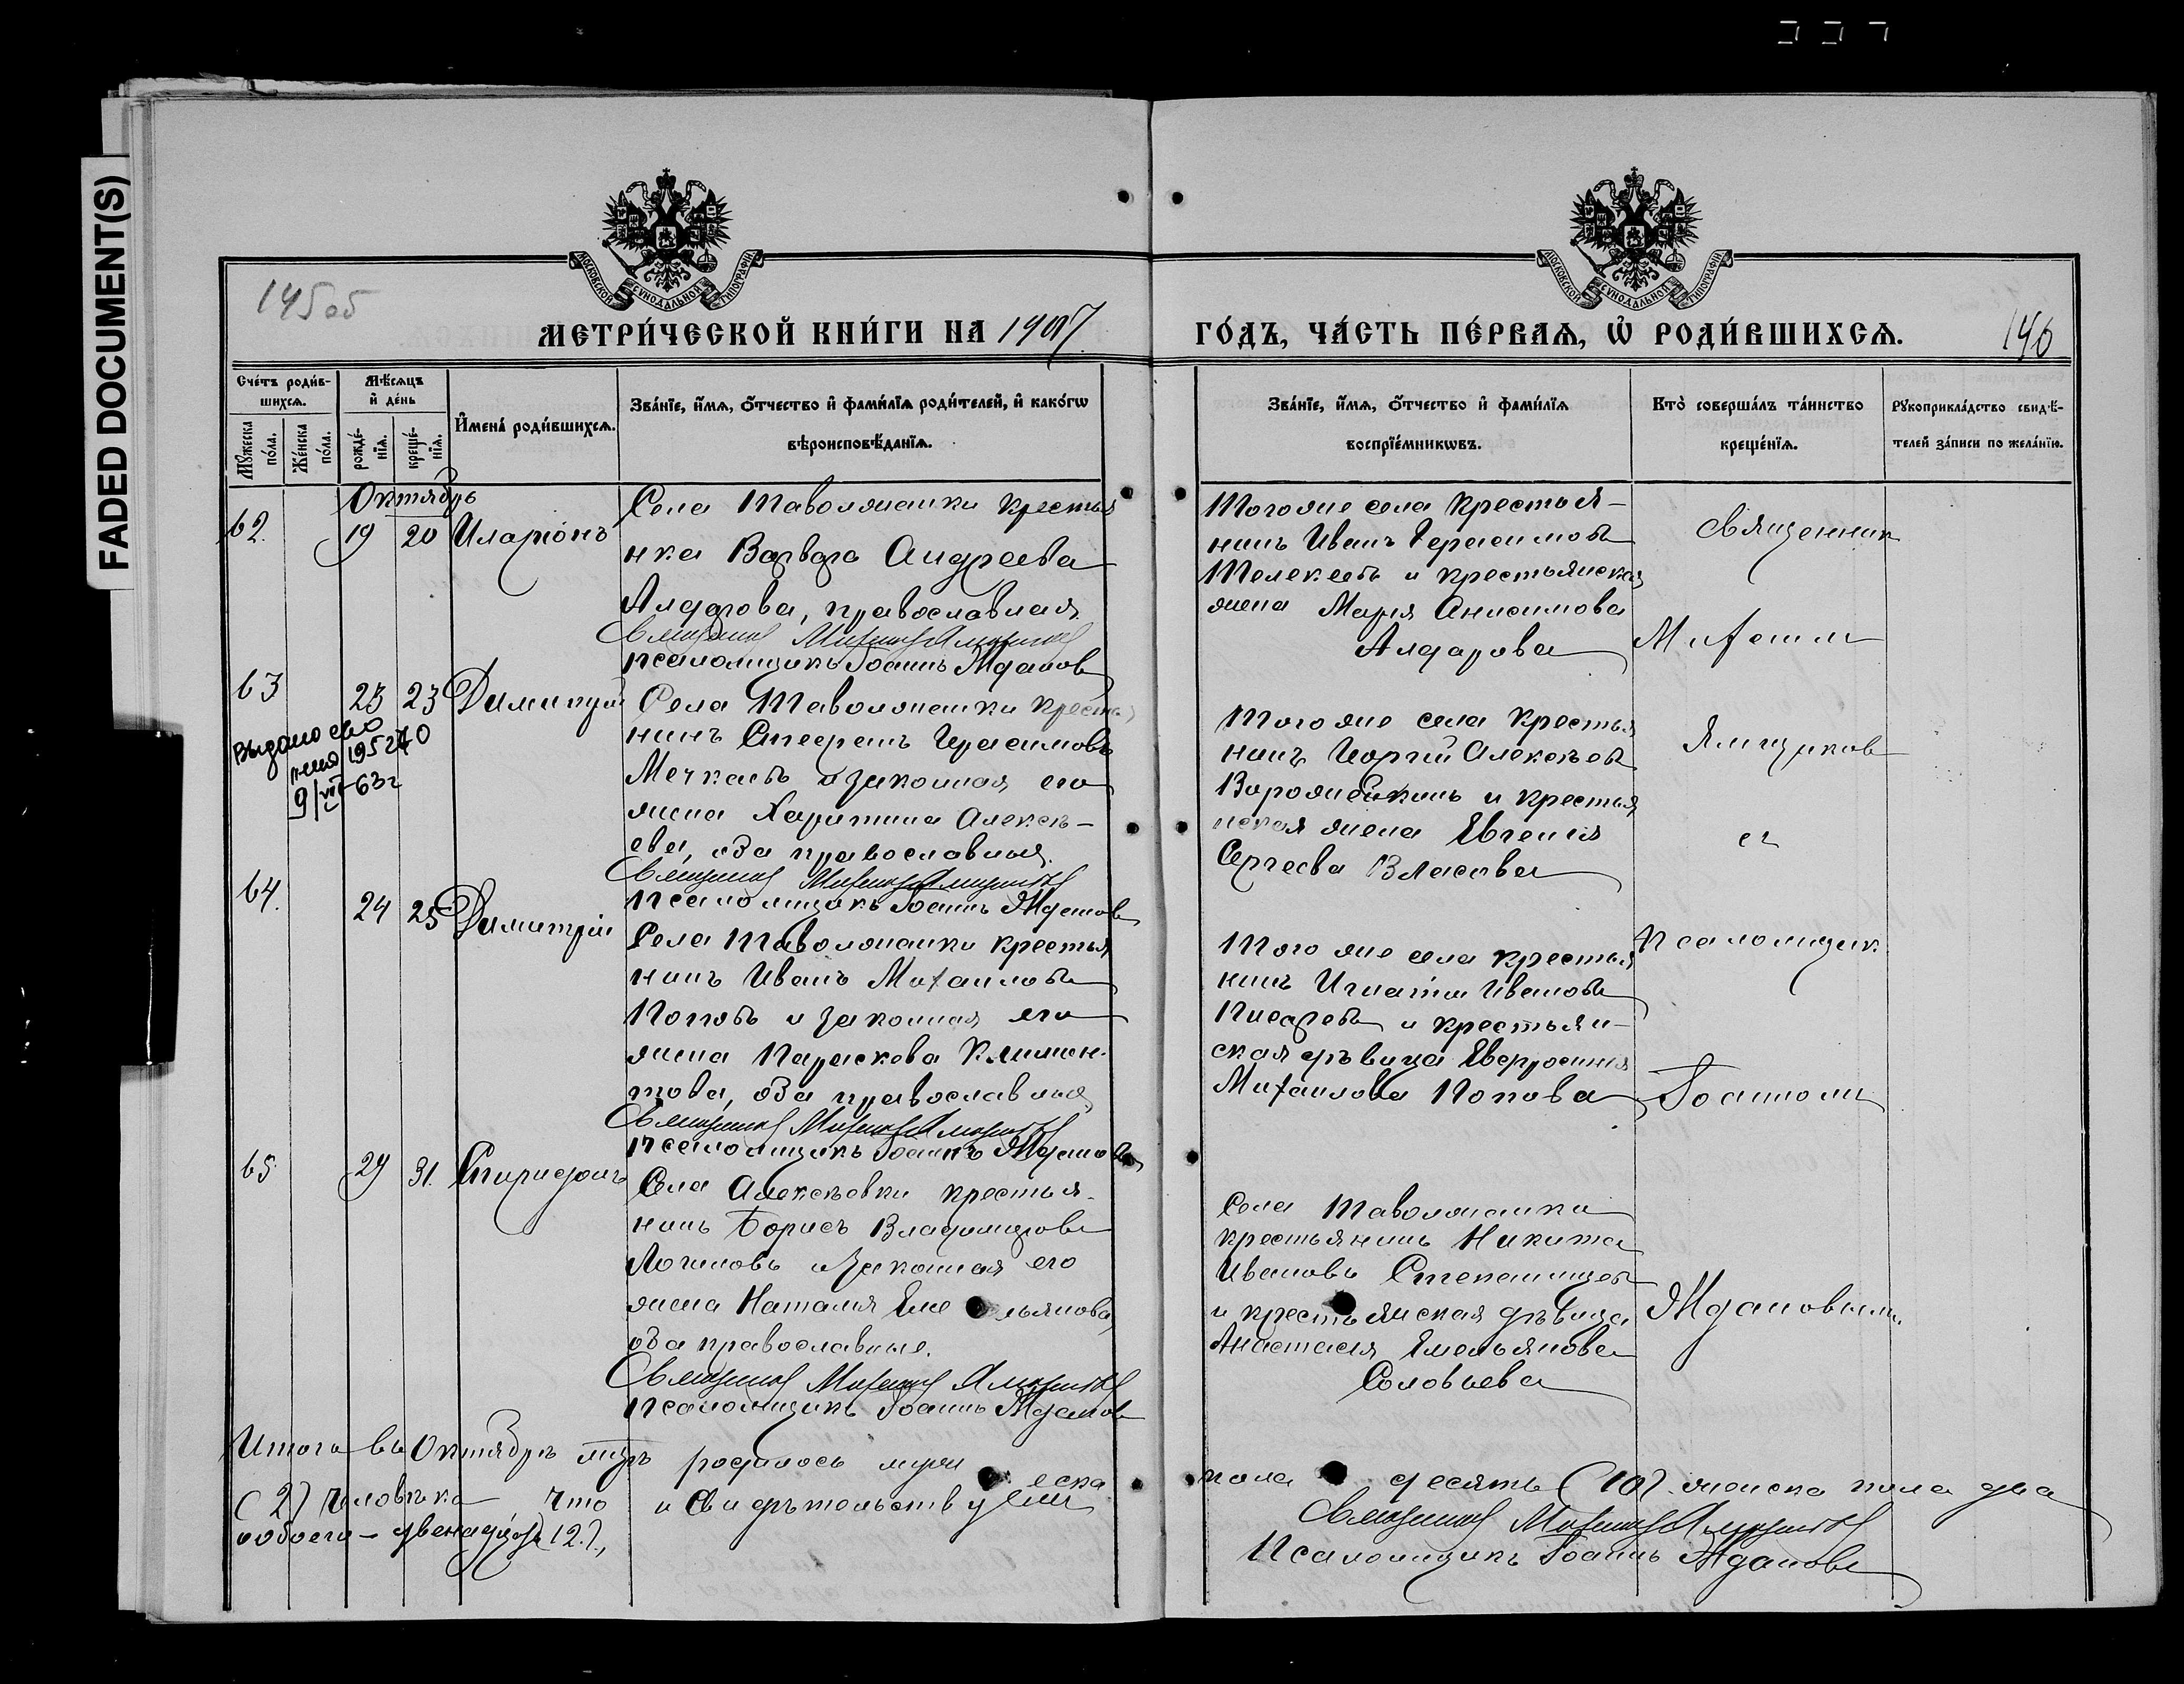 FADED DOCUMENT(S)
337
145об
146
МОСКОВСКОЙ СѴНОДАЛЬНОЙ ТИПОГРАФІИ
МОСКОВСКОЙ СѴНОДАЛЬНОЙ ТИПОГРАФІИ
МЕТРИ́ЧЕСКОЙ КНИ́ГИ НА 1907
ГО́ДЪ, ЧА́СТЬ ПЕ́РВАѦ, Ѡ҆ РОДИ́ВШИХСѦ.
Сче́тъ роди́в-
шихсѧ.
Мꙋ́жеска по́ла.
Же́нска по́ла.
Мѣ́сѧцъ
и҆ де́нь
рожде́-
нїѧ.
креще́-
нїѧ.
И҆мена̀ роди́вшихсѧ.
Зва́нїе, и҆́мѧ, ѻ҆́тчество и҆ фами́лїѧ роди́телей, и҆ како́гѡ
вѣроисповѣ́данїѧ.
Зва́нїе, и҆́мѧ, ѻ҆́тчество и҆ фами́лїѧ
воспрїе́мникѡвъ.
Кто̀ соверша́лъ та́инство
креще́нїѧ.
Рꙋкоприкла́дство свидѣ́-
телей за́писи по жела́нїю.
Октябрь
62. 19 20 Иларіонъ
Села Таволжанки крестья
нка Варвара Андреева
Алдарова, православная.
Священникъ Михаилъ Ямщиковъ
псаломщикъ Іоаннъ Ждановъ
Того же села Крестья-
нинъ Иванъ Герасимовъ
и крестьянская
жена Марія Анисимова
Алдарова
Священник
Михаил
63 23 23 Димитрій
Выдано сво
9/VII-63г
Села Таволжанки кресть
нинъ
и законная его
жена Харитина Алексѣ-
ева, оба православные.
Священникъ Михаилъ Ямщиковъ
Псаломщикъ Іоаннъ Ждановъ
Того же села Крестья
нинъ Георгій Алексѣевъ
и крестья
нская жена Евгенія
Сергеева Власова
Ямщиков
64. 24 25 Димитрій
Села Таволжанки крестья
нинъ Иванъ Михаиловъ
Поповъ и законная его
жена Параскева Климен-
това, оба православные
Священникъ Михаилъ Ямщиковъ
псаломщикъ Іоаннъ Ждановъ
Того же села крестья
нинъ Игнатій Ивановъ
Писаревъ и крестьян-
ская дѣвица Евфросинія
Михаилова Попова
Псаломщик.
Іоанном
65 29 31. Спиридонъ
Села Алексѣевки крестья-
нинъ Борисъ Владимировъ
Логиновъ и законная его
жена Наталія Емельянова,
оба православные.
Священникъ Михаилъ Ямщиковъ
псаломщикъ Іоаннъ Ждановъ
Села Таволжанки
крестьянинъ Никита
Ивановъ
и крестьянская дѣвица
Анастасія Емельянова
Соловьева
Ждановым.
Итого въ Октябрѣ м-цѣ родилось мужеска пола десять (10). женска пола два
(2) человѣка что и свидѣтельствуемъ
обоего - двенадцать (12.),
Священникъ Михаилъ Ямщиковъ
Псаломщикъ Іоаннъ Ждановъ